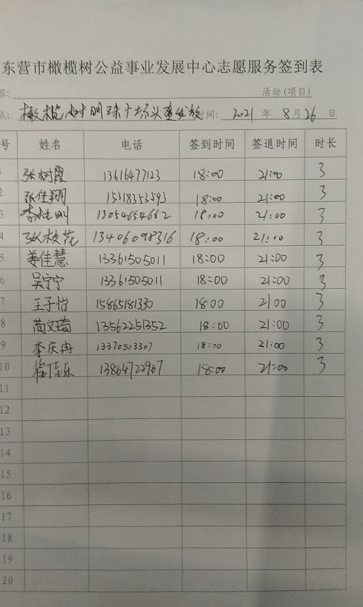 东营市橄榄树公益事业发展中心志愿服务签到表
活动(项目)
点: 橄榄树明珠广场 时间: 2021 年 8 月 26 日
号 姓名 电话 签到时间 签退时间 时长
1 张树霞 13616477123 18:00 21:00 3
2 张佳翔 18:00 21:00 3
3 13054654662 18:00 21:00 3
4 张校花 13406098316 18:00 21:00 3
5 姜佳慧 13361505011 18:00 21:00 3
6 吴宁宁 13361505011 18:00 21:00 3
7 王子怡 15865181330 18:00 21:00 3
8 13562251352 18:00 21:00 3
9 李庆冉 13370503307 18:00 21:00 3
10 13864722967 18:00 21:00 3
11
12
13
14
15
16
17
18
19
20